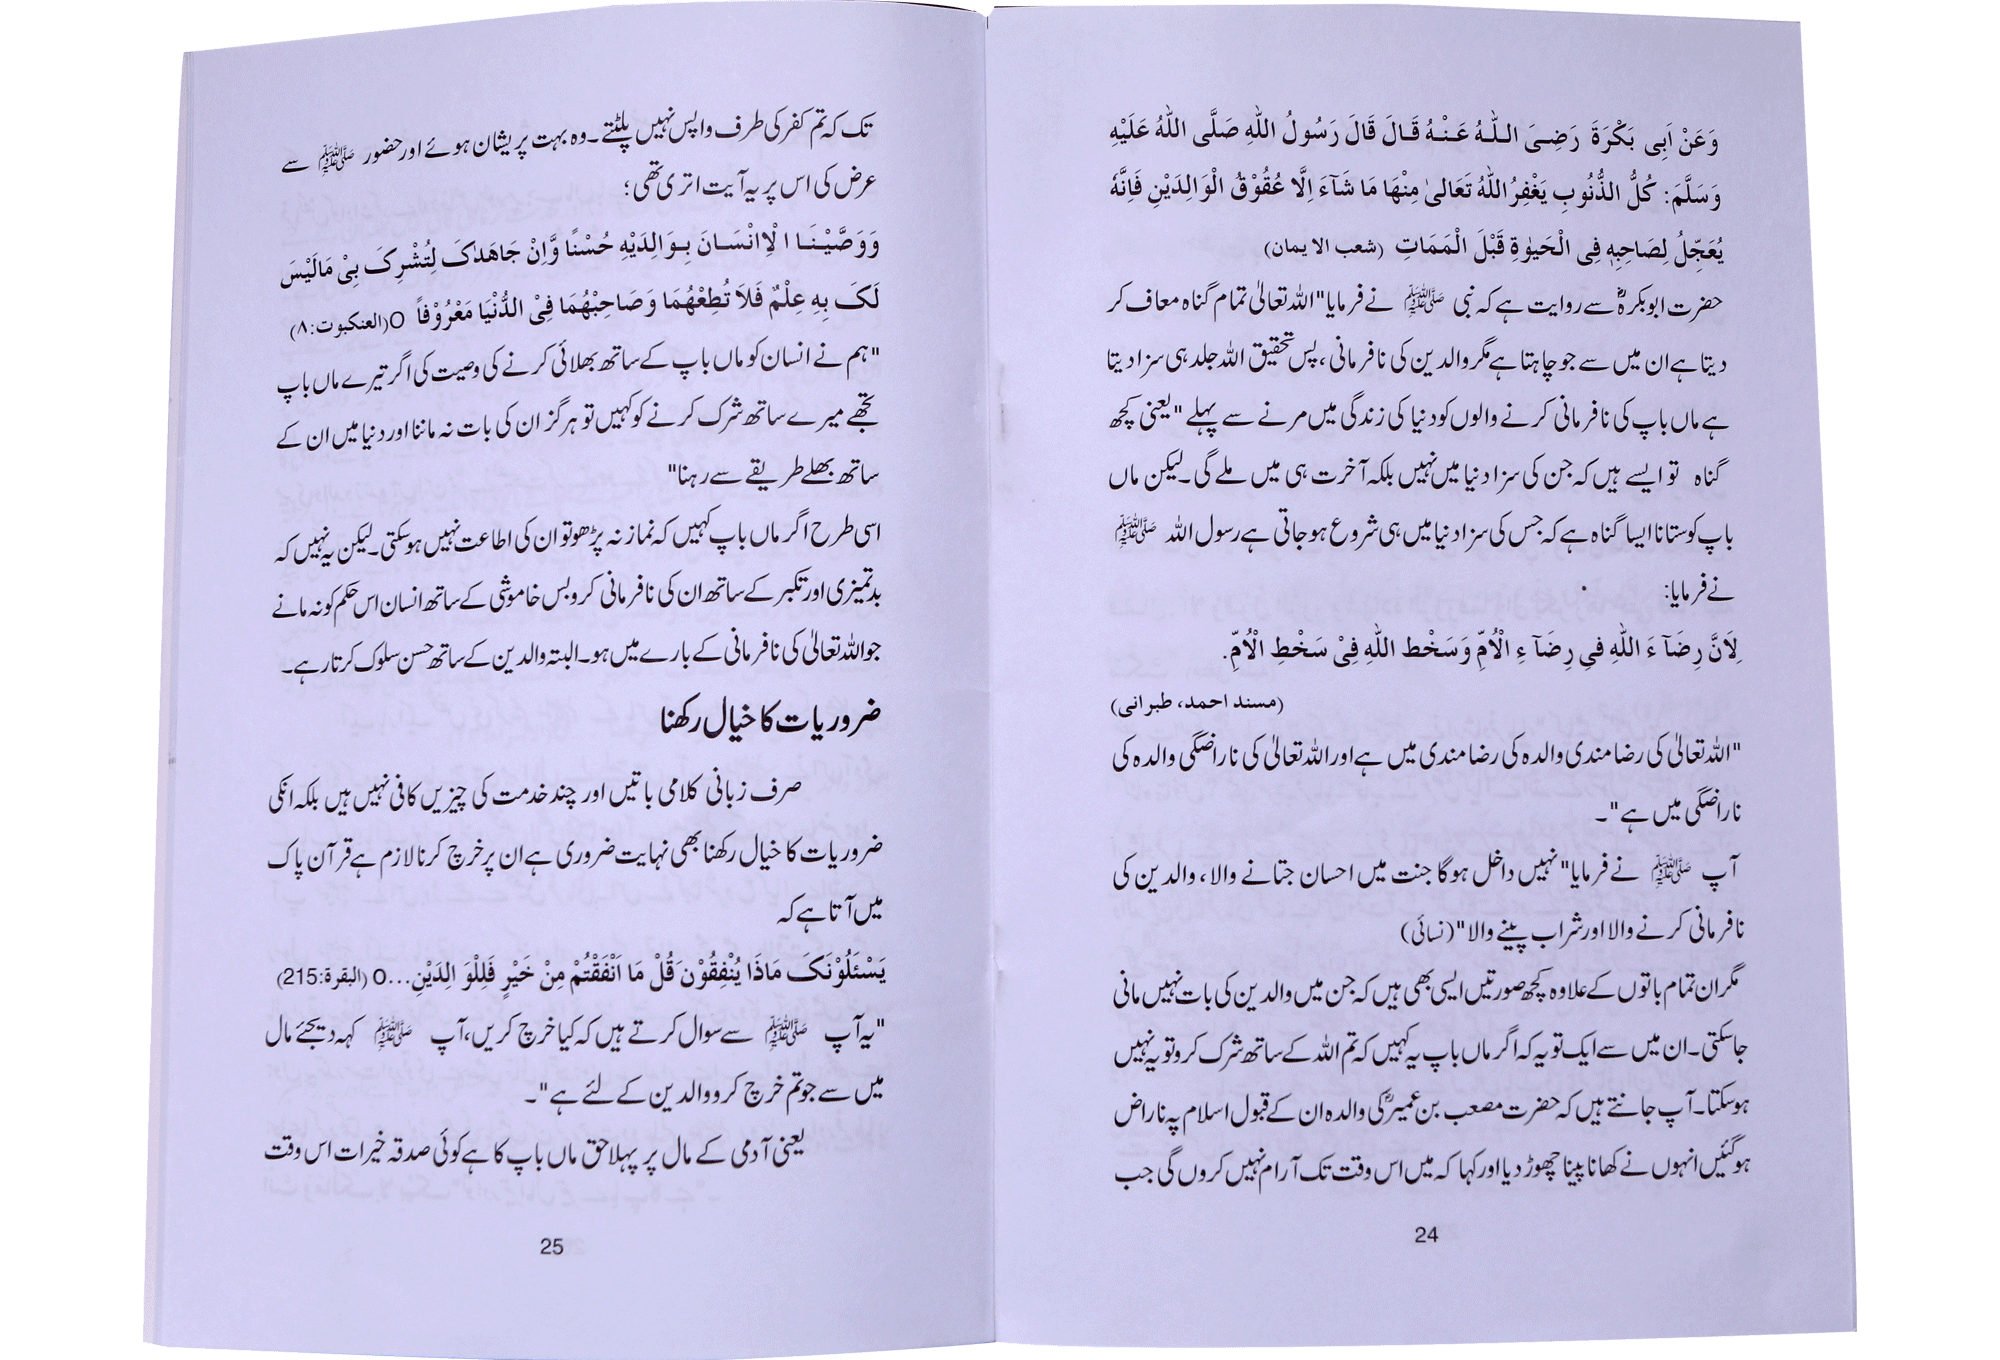 وَعَنْ اَبِی بَکْرَةَ رَضِیَ اللّٰهُ عَنْهُ قَالَ قَالَ رَسُولُ اللّٰهِ صَلَّی اللّٰهُ عَلَیْهِ
وَسَلَّمَ: کُلُّ الذُّنُوبِ یَغْفِرُ اللّٰهُ تَعَالیٰ مِنْهَا مَا شَآءَ اِلَّا عُقُوْقُ الْوَالِدَیْنِ فَاِنَّهٗ
یُعَجِّلُ لِصَاحِبِهٖ فِی الْحَیٰوةِ قَبْلَ الْمَمَاتِ (شعب الایمان)
حضرت ابوبکرہؓ سے روایت ہے کہ نبی ﷺ نے فرمایا "اللہ تعالیٰ تمام گناہ معاف کر
دیتا ہے ان میں سے جو چاہتا ہے مگر والدین کی نافرمانی، پس تحقیق اللہ جلد ہی سزا دیتا
ہے ماں باپ کی نافرمانی کرنے والوں کو دنیا کی زندگی میں مرنے سے پہلے" یعنی کچھ
گناہ تو ایسے ہیں کہ جن کی سزا دنیا میں نہیں بلکہ آخرت ہی میں ملے گی۔ لیکن ماں
باپ کو ستانا ایسا گناہ ہے کہ جس کی سزا دنیا میں ہی شروع ہو جاتی ہے رسول اللہ ﷺ
نے فرمایا:
لِاَنَّ رِضَآءَ اللّٰهِ فِی رِضَآءِ الْاُمِّ وَسَخْط اللّٰهِ فِیْ سَخْطِ الْاُمِّ.
(مسند احمد، طبرانی)
"اللہ تعالیٰ کی رضا مندی والدہ کی رضا مندی میں ہے اور اللہ تعالیٰ کی ناراضگی والدہ کی
ناراضگی میں ہے"۔
آپ ﷺ نے فرمایا "نہیں داخل ہوگا جنت میں احسان جتانے والا، والدین کی
نافرمانی کرنے والا اور شراب پینے والا" (نسائی)
مگر ان تمام باتوں کے علاوہ کچھ صورتیں ایسی بھی ہیں کہ جن میں والدین کی بات نہیں مانی
جاسکتی۔ ان میں سے ایک تو یہ کہ اگر ماں باپ یہ کہیں کہ تم اللہ کے ساتھ شرک کرو تو یہ نہیں
ہوسکتا۔ آپ جانتے ہیں کہ حضرت مصعب بن عمیرؓ کی والدہ ان کے قبول اسلام پہ ناراض
ہوگئیں انہوں نے کھانا پینا چھوڑ دیا اور کہا کہ میں اس وقت تک آرام نہیں کروں گی جب
24
تک کہ تم کفر کی طرف واپس نہیں پلٹتے۔ وہ بہت پریشان ہوئے اور حضور ﷺ سے
عرض کی اس پر یہ آیت اتری تھی؛
وَوَصَّیْنَا الْاِنْسَانَ بِوَالِدَیْهِ حُسْنًا وَّاِنْ جَاهَدٰکَ لِتُشْرِکَ بِیْ مَالَیْسَ
لَکَ بِهٖ عِلْمٌ فَلاَ تُطِعْهُمَا وَصَاحِبْهُمَا فِیْ الدُّنْیَا مَعْرُوْفاً O (العنکبوت:۸)
"ہم نے انسان کو ماں باپ کے ساتھ بھلائی کرنے کی وصیت کی اگر تیرے ماں باپ
تجھے میرے ساتھ شرک کرنے کو کہیں تو ہرگز ان کی بات نہ ماننا اور دنیا میں ان کے
ساتھ بھلے طریقے سے رہنا"
اسی طرح اگر ماں باپ کہیں کہ نماز نہ پڑھو تو ان کی اطاعت نہیں ہوسکتی۔ لیکن یہ نہیں کہ
بدتمیزی اور تکبر کے ساتھ ان کی نافرمانی کرو بس خاموشی کے ساتھ انسان اس حکم کو نہ مانے
جو اللہ تعالیٰ کی نافرمانی کے بارے میں ہو۔ البتہ والدین کے ساتھ حسن سلوک کرتا رہے۔
ضروریات کا خیال رکھنا
صرف زبانی کلامی باتیں اور چند خدمت کی چیزیں کافی نہیں ہیں بلکہ انکی
ضروریات کا خیال رکھنا بھی نہایت ضروری ہے ان پر خرچ کرنا لازم ہے قرآن پاک
میں آتا ہے کہ
یَسْئَلُوْنَکَ مَاذَا یُنْفِقُوْنَ قُلْ مَا اَنْفَقْتُمْ مِنْ خَیْرٍ فَلِلْوَالِدَیْنِ...O (البقرة:215)
"یہ آپ ﷺ سے سوال کرتے ہیں کہ کیا خرچ کریں، آپ ﷺ کہہ دیجئے مال
میں سے جو تم خرچ کرو والدین کے لئے ہے"۔
یعنی آدمی کے مال پر پہلا حق ماں باپ کا ہے کوئی صدقہ خیرات اس وقت
25